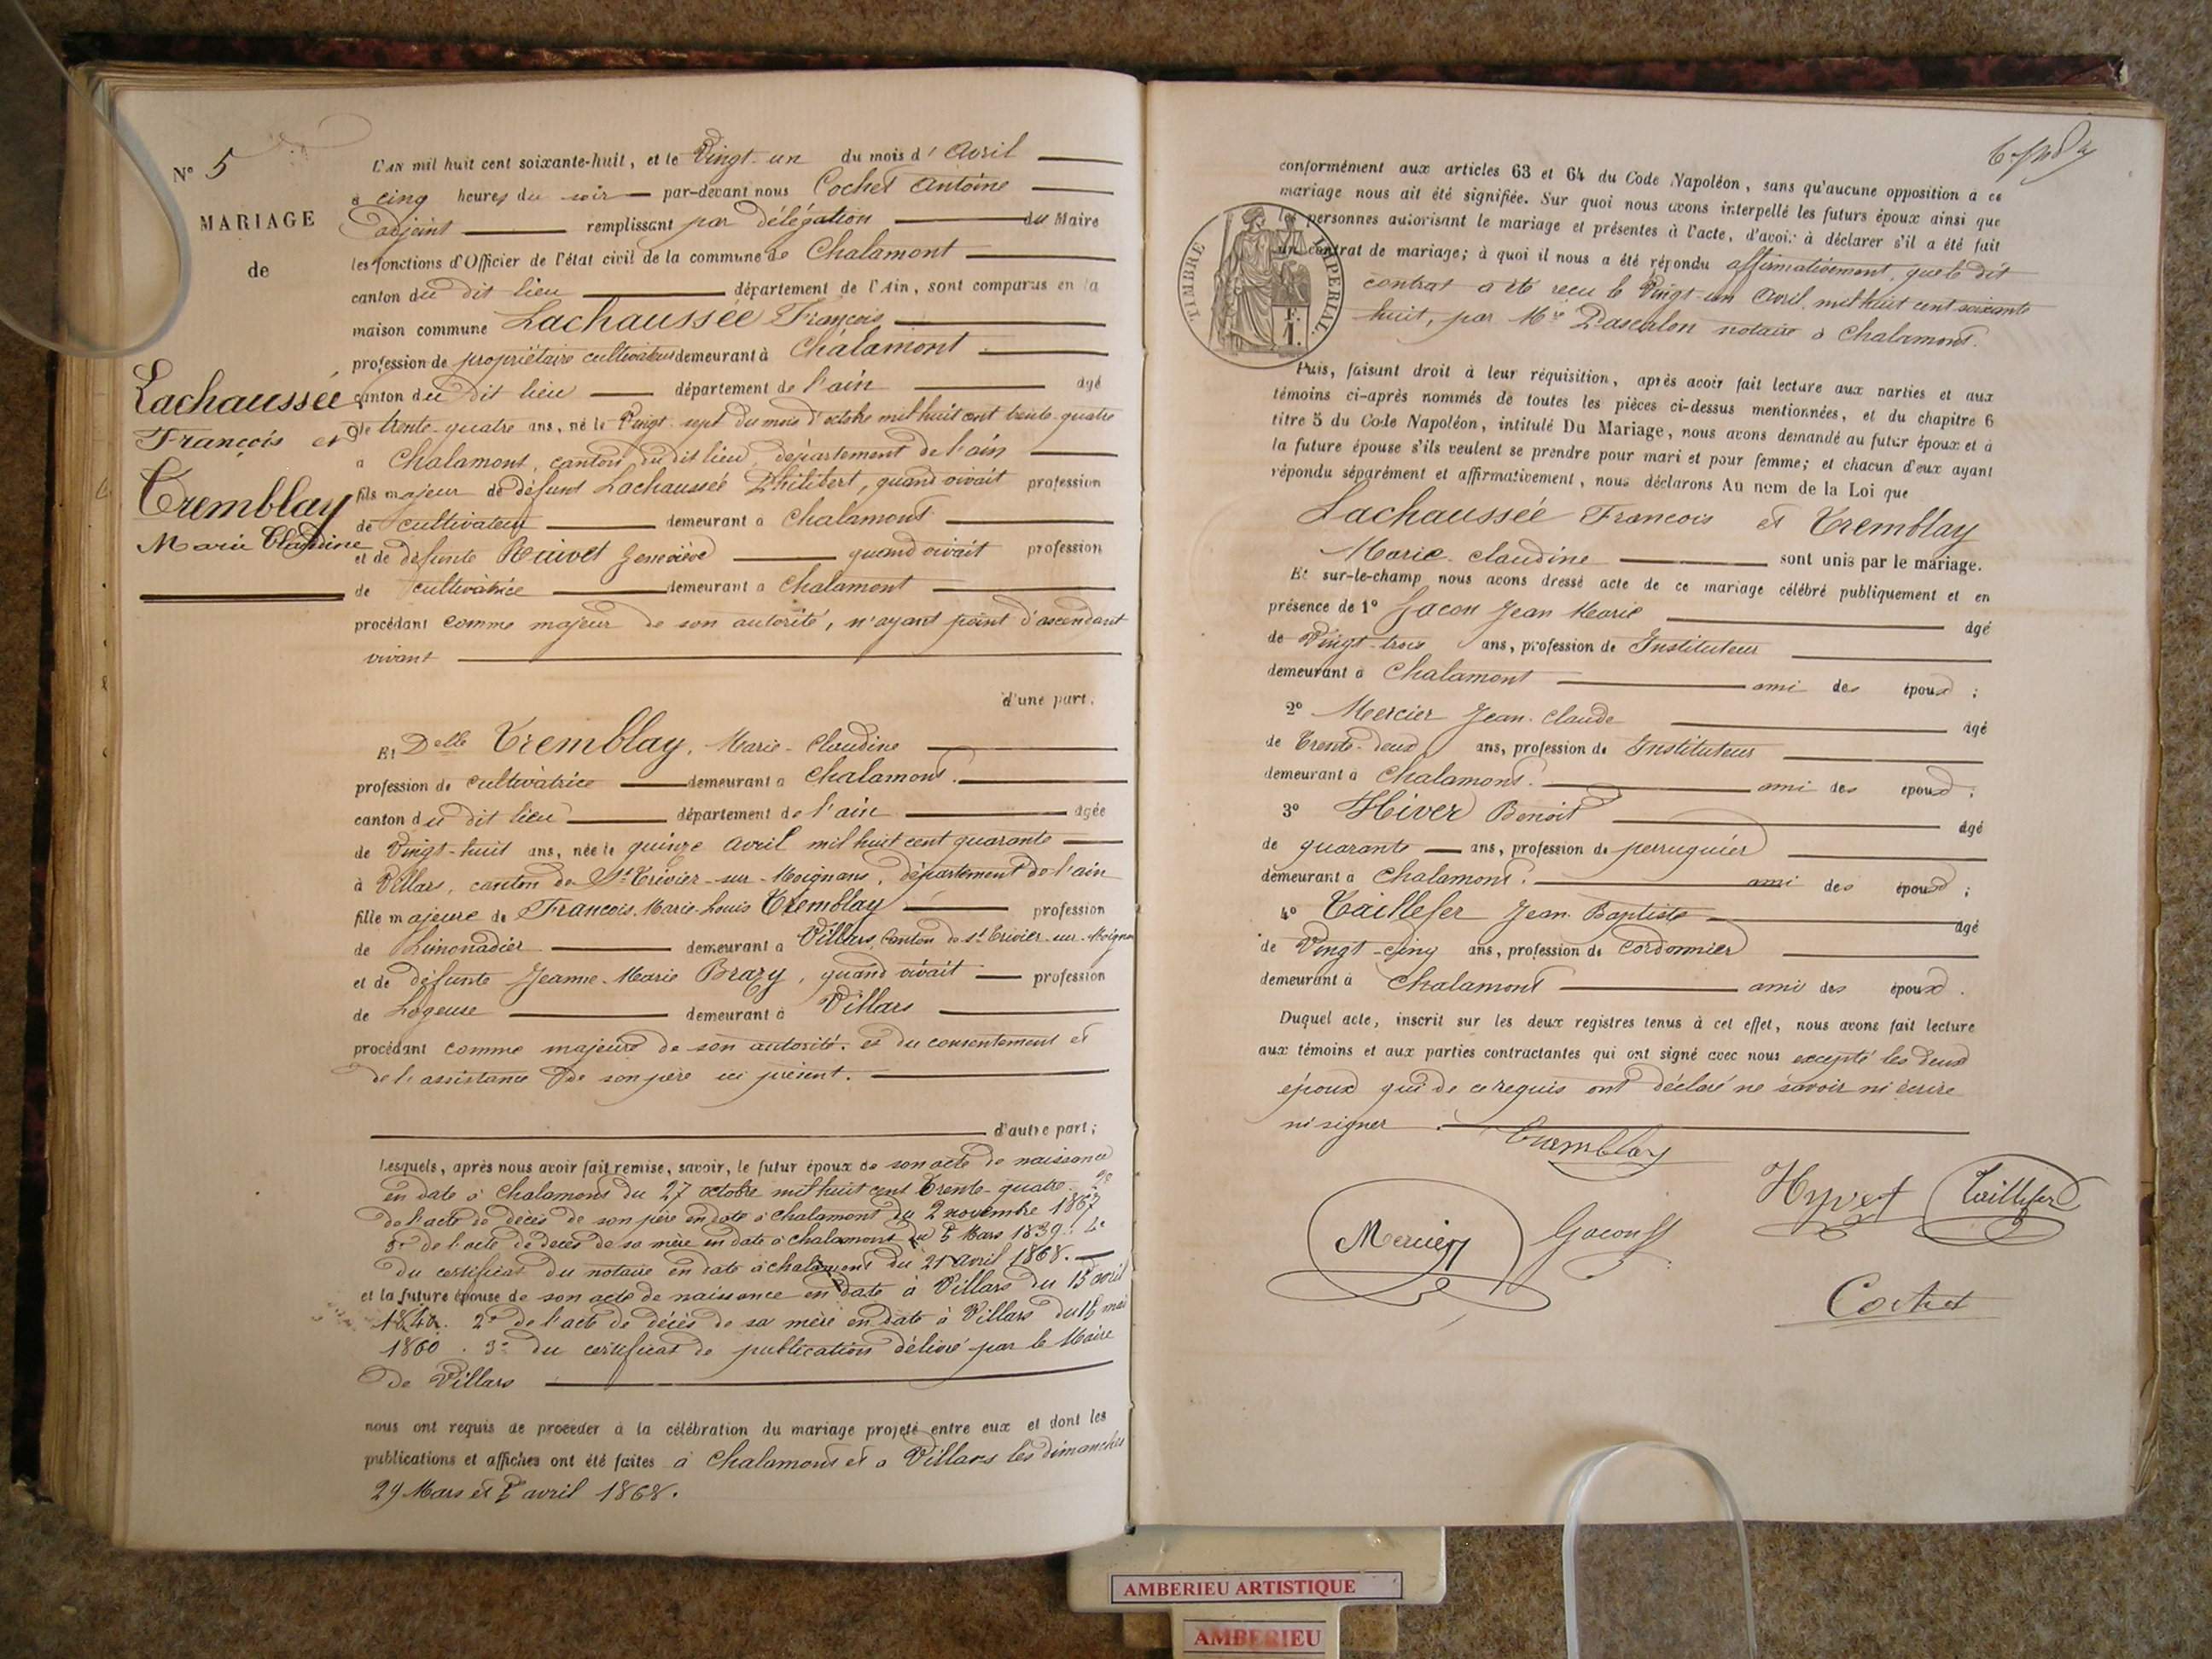 N° 5
MARIAGE
de
Lachaussée
François et
Tremblay
Marie Claudine
L'AN mil huit cent soixante-huit, et le Vingt-un du mois d'Avril
à cinq heures du soir par-devant nous Cochet Antoine
adjoint remplissant par délégation du Maire
les fonctions d'Officier de l'état civil de la commune de Chalamont
canton du dit lieu département de l'Ain, sont comparus en la
maison commune Lachaussée François
profession de propriétaire cultivateur demeurant à Chalamont
canton du dit lieu département de l'ain âgé
de trente-quatre ans, né le Vingt-sept du mois d'octobre mil huit cent trente-quatre
à Chalamont, canton du dit lieu, département de l'ain
fils majeur de défunt Lachaussée Philibert, quand vivait profession
de cultivateur demeurant à Chalamont
et de défunte Ruivet Geneviève quand vivait profession
de cultivatrice demeurant à Chalamont
procédant comme majeur de son autorité, n'ayant point d'ascendant
vivant
d'une part.
Et Delle Tremblay, Marie-Claudine
profession de cultivatrice demeurant à Chalamont.
canton du dit lieu département de l'ain âgée
de Vingt-huit ans, née le quinze Avril mil huit cent quarante
à Villars, canton de St Trivier-sur-Moignans, département de l'ain
fille majeure de François-Marie-Louis Tremblay profession
de Limonadier demeurant à Villars, canton de St Trivier-sur-Moignans
et de défunte Jeanne-Marie Brazy, quand vivait profession
de Logeuse demeurant à Villars
procédant comme majeure de son autorité, et du consentement et
de l'assistance de son père ici présent.
d'autre part;
Lesquels, après nous avoir fait remise, savoir, le futur époux de son acte de naissance
en date à Chalamont du 27 octobre mil huit cent trente-quatre. 2°
de l'acte de décès de son père en date à Chalamont du 2 novembre 1867
3° de l'acte de décès de sa mère en date à Chalamont du 5 Mars 1839. 4°
du certificat du notaire en date à chalamont du 21 avril 1868.
et la future épouse de son acte de naissance en date à Villars du 15 avril
1840. 2° de l'acte de décès de sa mère en date à Villars du 16 mai
1860. 3° du certificat de publications délivré par le Maire
de Villars
nous ont requis de procéder à la célébration du mariage projeté entre eux et dont les
publications et affiches ont été faites à Chalamont et à Villars les dimanches
29 Mars et 5 avril 1868.
conformément aux articles 63 et 64 du Code Napoléon, sans qu'aucune opposition à ce
mariage nous ait été signifiée. Sur quoi nous avons interpellé les futurs époux ainsi que
les personnes autorisant le mariage et présentes à l'acte, d'avoir à déclarer s'il a été fait
un contrat de mariage; à quoi il nous a été répondu affirmativement, que le dit
contrat a été reçu le Vingt-un Avril mil huit cent soixante
huit, par Me Dascalon notaire à Chalamont.
TIMBRE IMPERIAL.
F.
1.
Puis, faisant droit à leur réquisition, après avoir fait lecture aux parties et aux
témoins ci-après nommés de toutes les pièces ci-dessus mentionnées, et du chapitre 6
titre 5 du Code Napoléon, intitulé Du Mariage, nous avons demandé au futur époux et à
la future épouse s'ils veulent se prendre pour mari et pour femme; et chacun d'eux ayant
répondu séparément et affirmativement, nous déclarons Au nom de la Loi que
Lachaussée François et Tremblay
Marie-claudine sont unis par le mariage.
Et sur-le-champ nous avons dressé acte de ce mariage célébré publiquement et en
présence de 1° Gacon Jean Marie âgé
de Vingt-trois ans, profession de Instituteur
demeurant à Chalamont ami des époux ;
2° Mercier Jean-Claude âgé
de Trente-deux ans, profession de Instituteur
demeurant à Chalamont. ami des époux ;
3° Hiver Benoit âgé
de quarante ans, profession de perruquier
demeurant à Chalamont. ami des époux ;
4° Taillefer Jean-Baptiste âgé
de Vingt-cinq ans, profession de cordonnier
demeurant à Chalamont ami des époux.
Duquel acte, inscrit sur les deux registres tenus à cet effet, nous avons fait lecture
aux témoins et aux parties contractantes qui ont signé avec nous excepté les deux
époux qui de ce requis ont déclaré ne savoir ni écrire
ni signer.
Tremblay
Hyvert Taillefer
Mercier Gacon
Cochet
AMBERIEU ARTISTIQUE
AMBERIEU